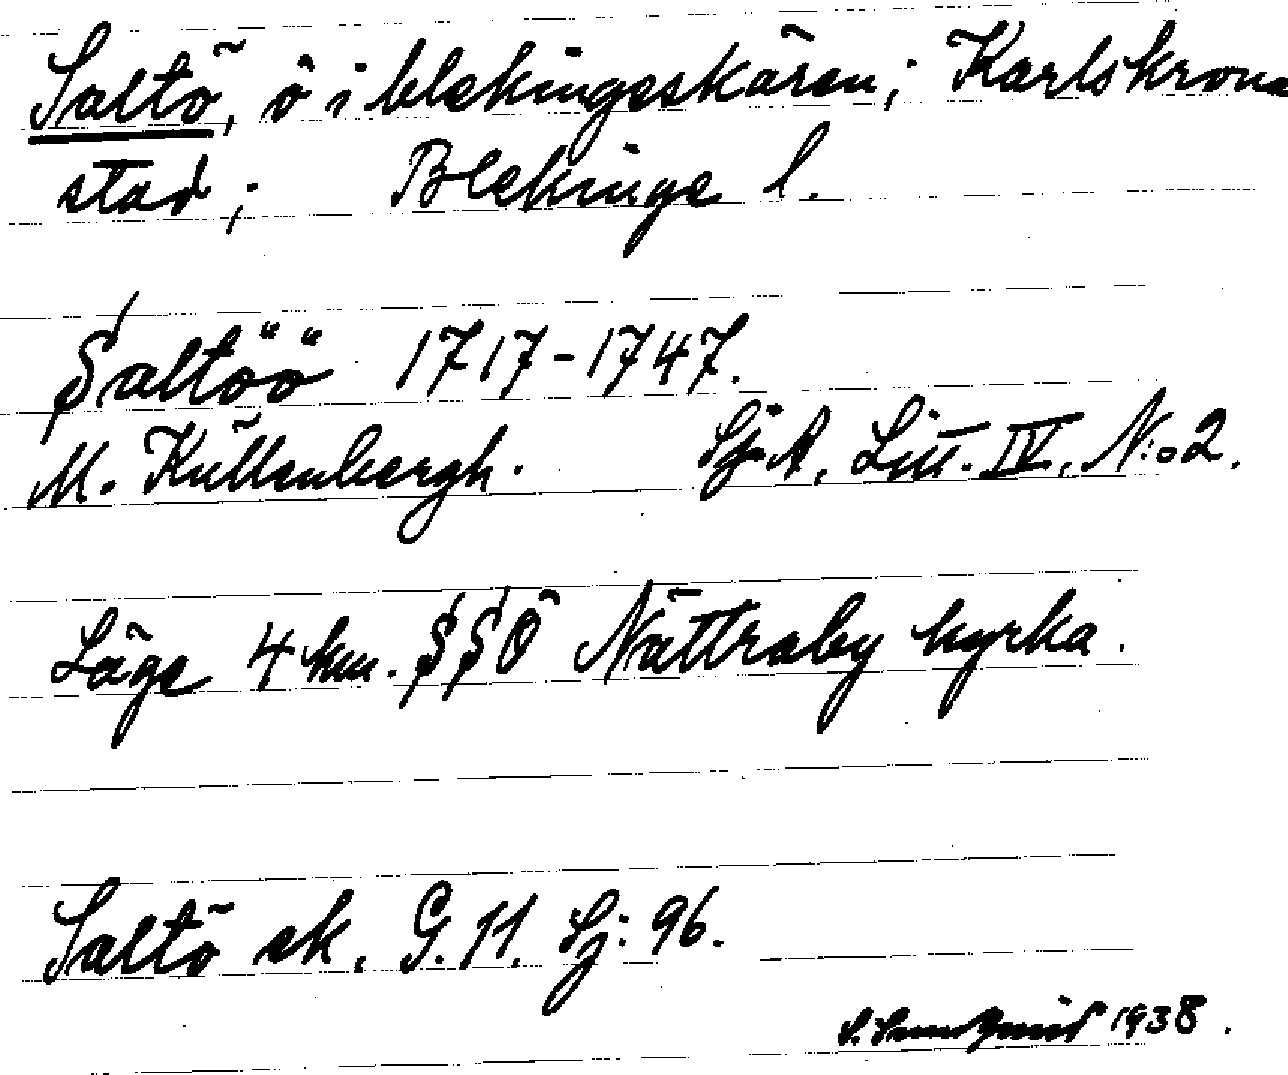 Saltö, ö i blekingeskären; Karlskrona
stad; Blekinge l.
Saltöö 1717-1747.
M. Küllenbergh. Sj.A. Litt. IV, N:o 2.
Läge 4 km. SSÖ Nättraby kyrka.
Saltö ek. G. 11. Sj: 96.
1938.